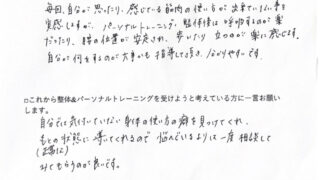 毎回、自分が思ったり、感じている筋肉の使い方が出来ていない事を
実感しますが、パーソナルトレーニング・整体後は呼吸するのが楽
だったり、膝の位置が安定され、歩いたり立つのが楽に感じます。
自分が何をするのが大事かも指導して頂き、分かりやすいです。
□これから整体&パーソナルトレーニングを受けようと考えている方に一言お願い
します。
自分では気付いていない身体の使い方の癖を見つけてくれ、
もとの状態に導いてくれるので悩んでいるよりは一度相談して
(正常に)
みてもらうのが良いです。